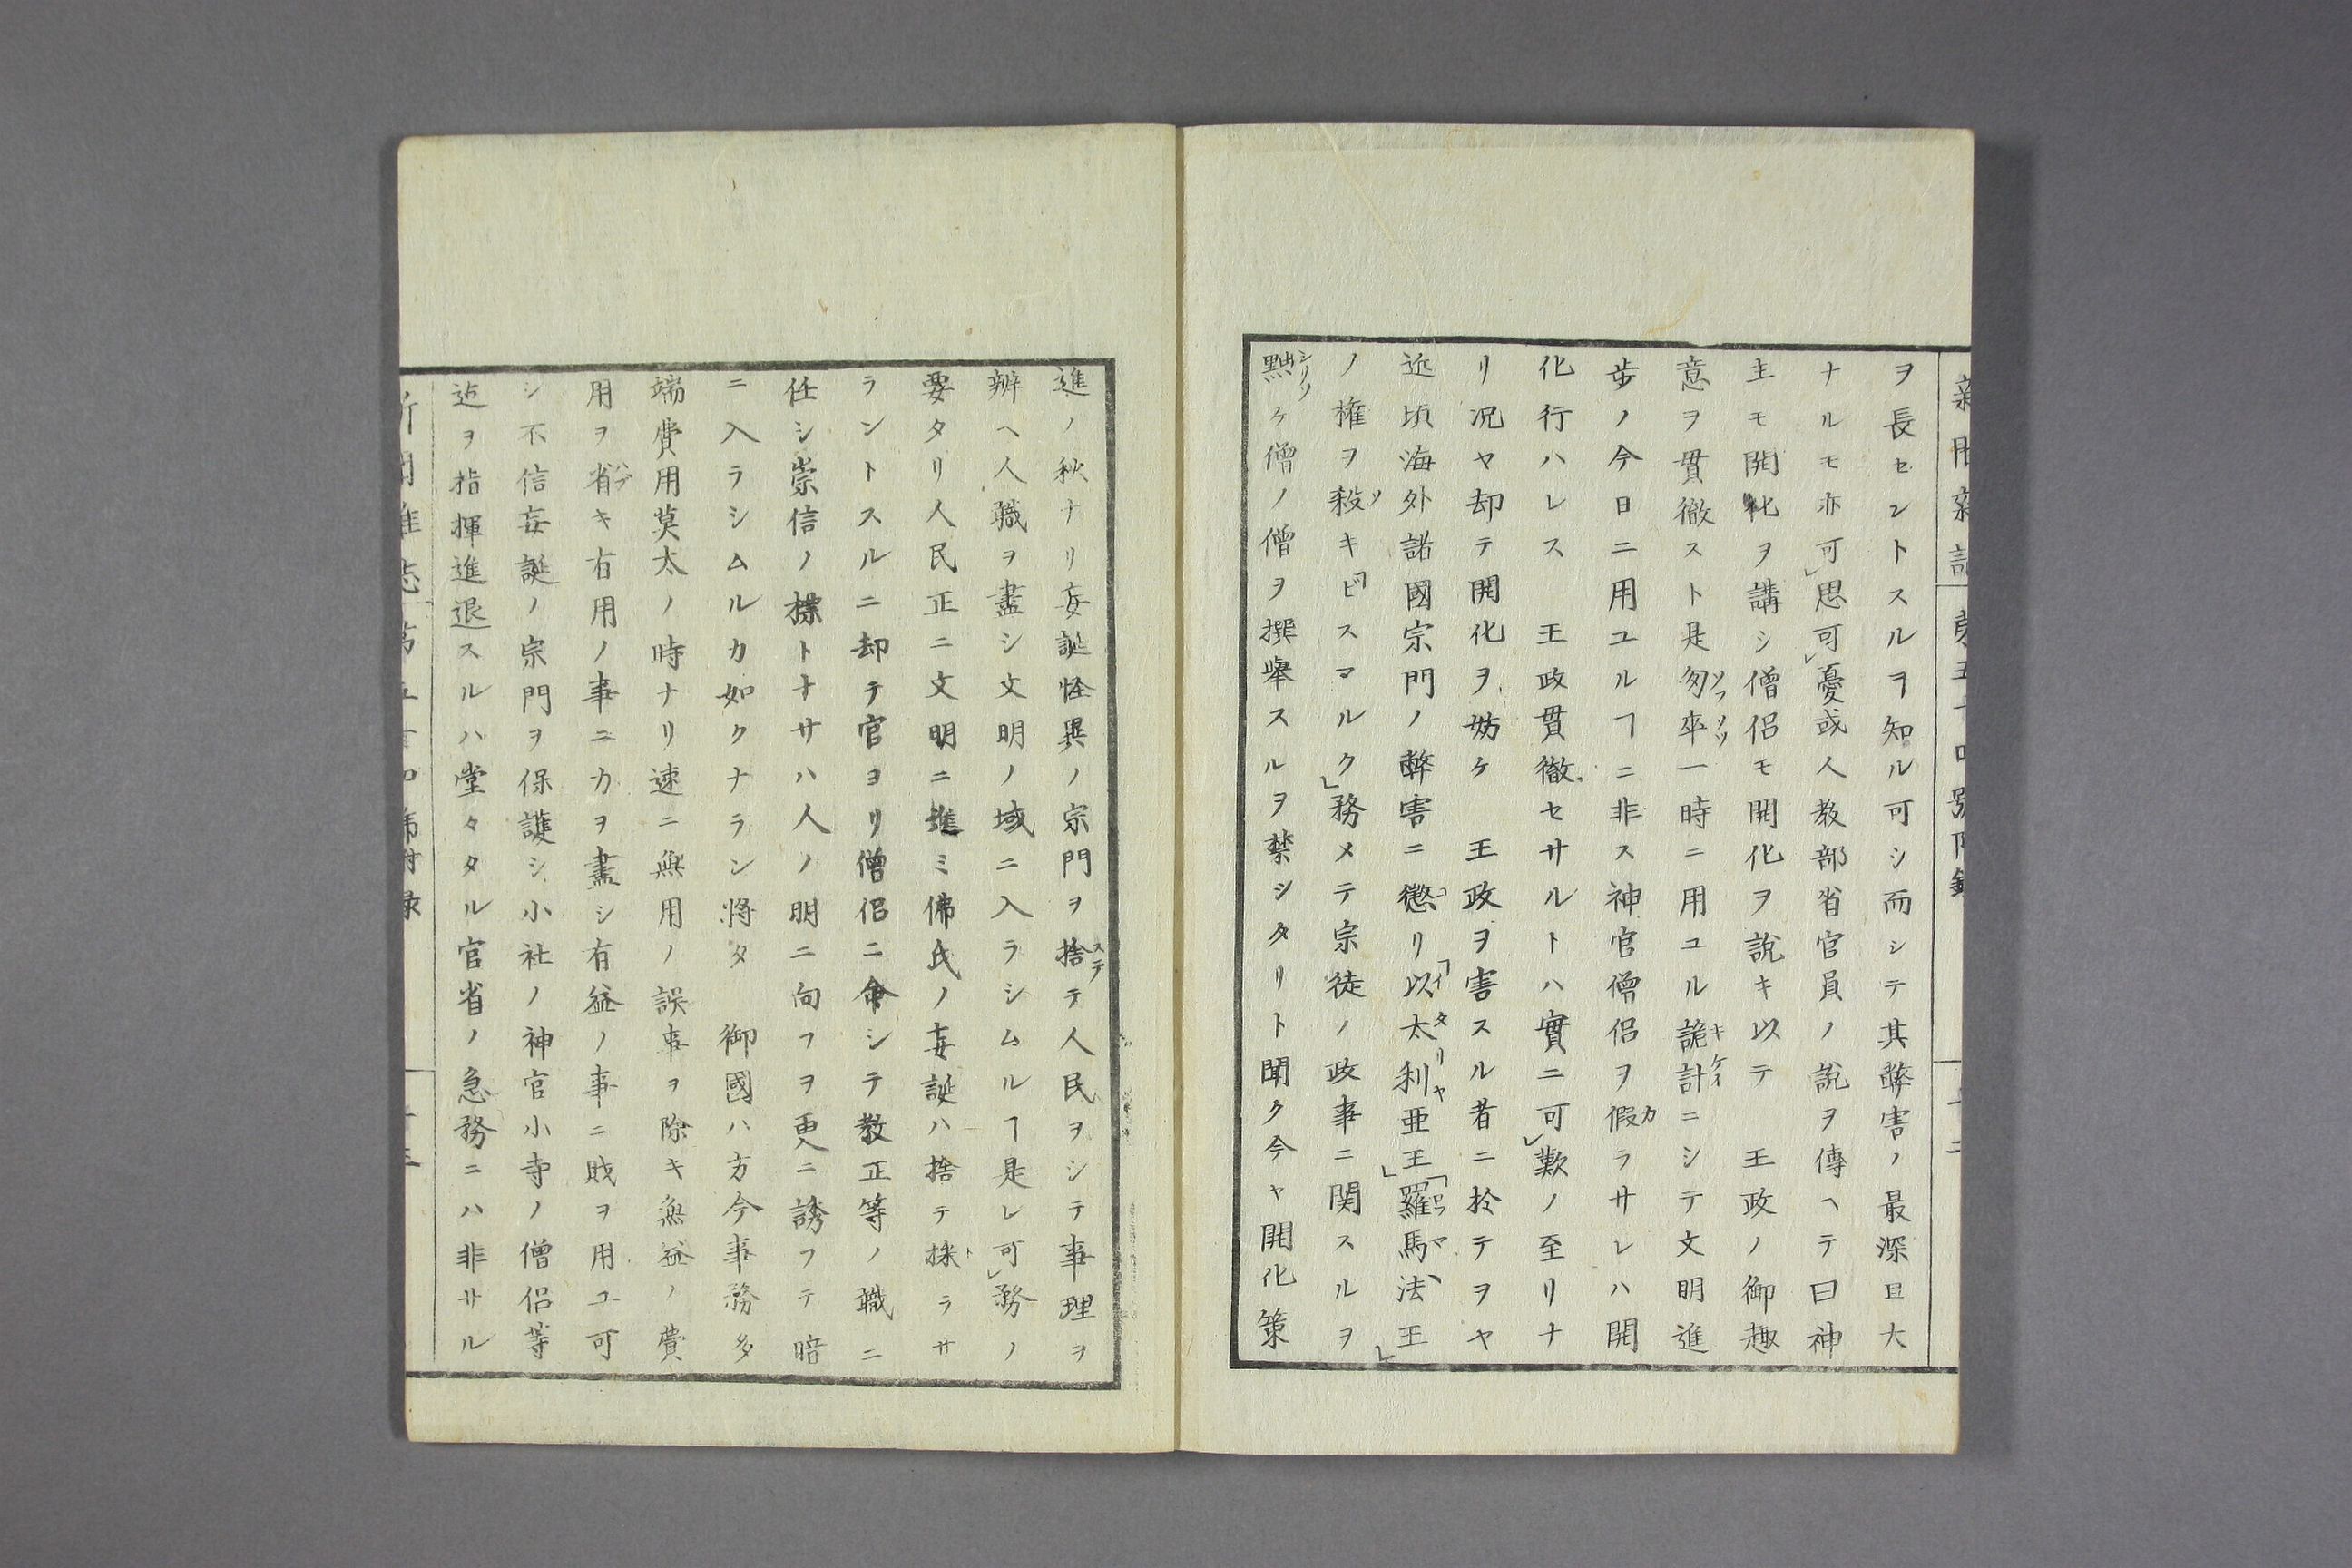 ヲ長セントスルヲ知ル可シ而シテ其弊害ノ最深且大
ナルモ亦可レ思可レ憂或人教部省官員ノ說ヲ傳ヘテ曰神
主モ開化ヲ講シ僧侶モ開化ヲ說キ以テ　王政ノ御趣
意ヲ貫徹スト是匆卒一時ニ用ユル詭計ニシテ文明進
歩ノ今日ニ用ユルヿニ非ス神官僧侶ヲ假ラサレハ開
化行ハレス　王政貫徹セサルトハ實ニ可レ歎ノ至リナ
リ況ヤ却テ開化ヲ妨ケ　王政ヲ害スル者ニ於テヲヤ
近頃海外諸國宗門ノ弊害ニ懲リ「以太利亜王」「羅馬法王」
ノ権ヲ殺キ「ビスマルク」務メテ宗徒ノ政事ニ関スルヲ
黜ケ僧ノ僧ヲ撰擧スルヲ禁シタリト聞ク今ヤ開化策
進ノ秋ナリ妄誕怪異ノ宗門ヲ捨テ人民ヲシテ事理ヲ
辨ヘ人職ヲ盡シ文明ノ域ニ入ラシムルヿ是レ可レ務ノ
要タリ人民正ニ文明ニ進ミ佛氏ノ妄誕ハ捨テ採ラサ
ラントスルニ却テ官ヨリ僧侶ニ命シテ教正等ノ職ニ
任シ崇信ノ標トナサハ人ノ明ニ向フヲ更ニ誘フテ暗
ニ入ラシムルカ如クナラン将タ　御國ハ方今事務多
端費用莫太ノ時ナリ速ニ無用ノ誤事ヲ除キ無益ノ費
用ヲ省キ有用ノ事ニカヲ盡シ有益ノ事ニ財ヲ用ユ可
シ不信妄誕ノ宗門ヲ保護シ小社ノ神官小寺ノ僧侶等
迠ヲ指揮進退スルハ堂々タル官省ノ急務ニハ非サル